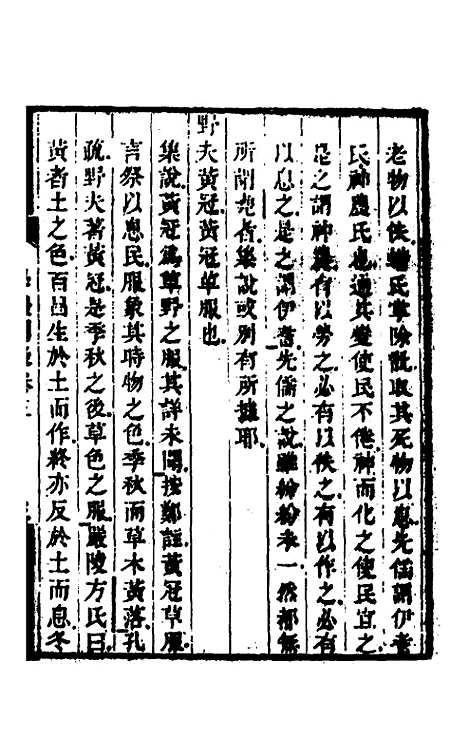 老物以佚蜡氏掌除骴取其死物以息先儒謂伊耆
氏神農氏也通其變使民不倦神而化之使民宜之
是之謂神農有以勞之必有以佚之有以作之必有
以息之是之謂伊耆先儒之說雖紛紛未一然都無
所謂堯者集說或別有所據耶
野夫黃冠黃冠草服也
集說黃冠爲草野之服其詳未聞按鄭註黃冠草服
言祭以息民服象其時物之色季秋而草木黃落孔
疏野夫著黃冠是季秋之後草色之服嚴陵方氏曰
黃者土之色百昌生於土而作終亦反於土而息冬